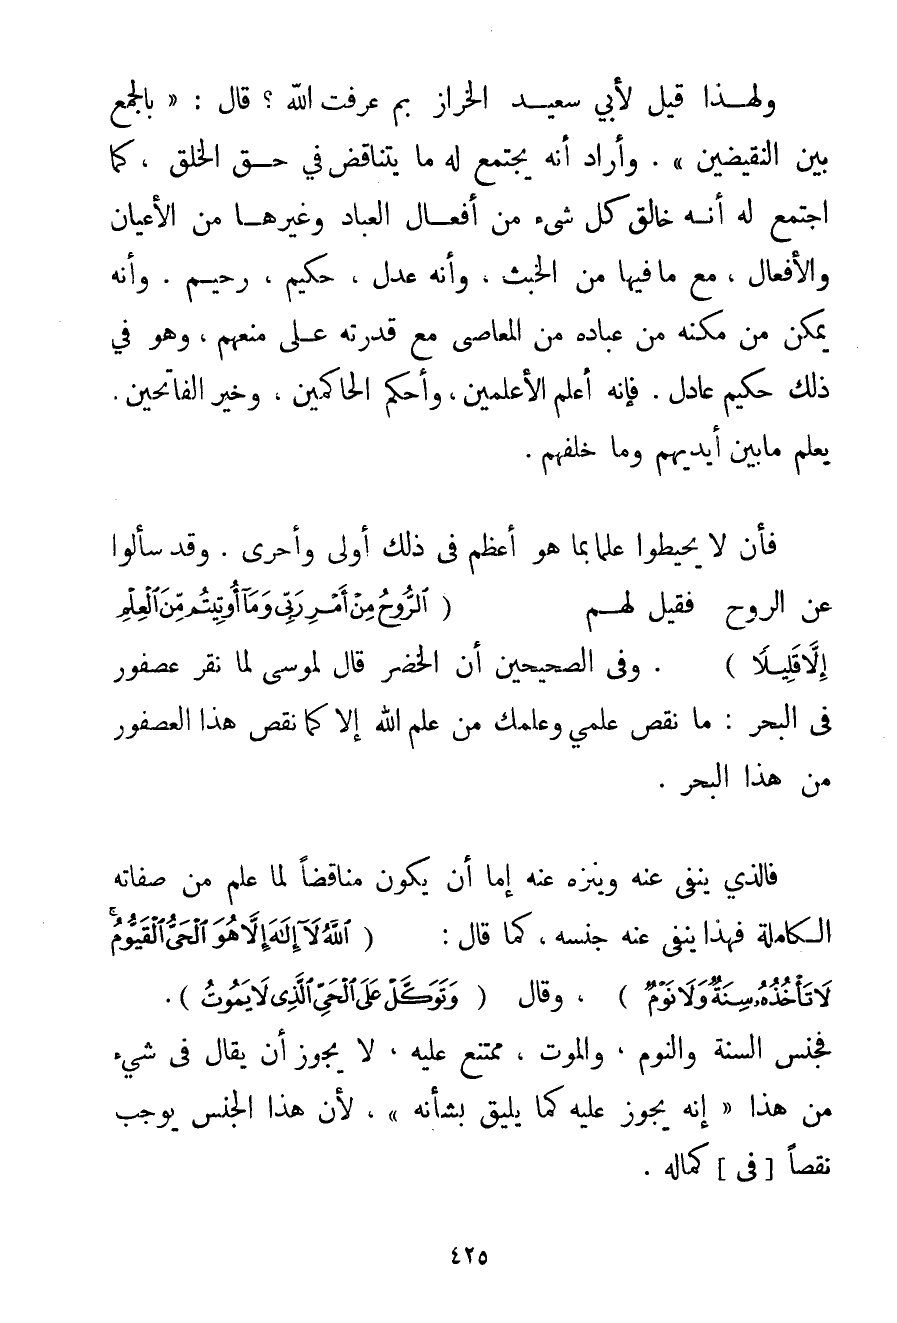 ولهــذا قيل لأبي سعيــد الخراز بم عرفت الله ؟ قال : « بالجمع
بين النقيضين » . وأراد أنه يجتمع له ما يتناقض في حــق الخلق ، كما
اجتمع له أنــه خالق كل شىء من أفعــال العباد وغيرهــا من الأعيان
والأفعال ، مع ما فيها من الخبث ، وأنه عدل ، حكيم ، رحيــم . وأنه
يمكن من مكنه من عباده من المعاصى مع قدرته عــلى منعهم ، وهو في
ذلك حكيم عادل . فإنه أعلم الأعلمين ، وأحكم الحاكمين ، وخير الفاتحين .
يعلم مابين أيديهم وما خلفهم .
فأن لا يحيطوا علما بما هو أعظم فى ذلك أولى وأحرى . وقد سألوا
عن الروح فقيل لهــم ( ٱلرُّوحُ مِنْ أَمْرِ رَبِّى وَمَآ أُوتِيتُم مِّنَ ٱلْعِلْمِ
إِلَّا قَلِيلًا ) . وفى الصحيحين أن الخضر قال لموسى لما نقر عصفور
فى البحر : ما نقص علمي وعلمك من علم الله إلا كما نقص هذا العصفور
من هذا البحر .
فالذي ينفى عنه وينزه عنه إما أن يكون مناقضاً لما علم من صفاته
الـكاملة فهذا ينفى عنه جنسه ، كما قال : ( ٱللَّهُ لَآ إِلَٰهَ إِلَّا هُوَ ٱلْحَىُّ ٱلْقَيُّومُ ۚ
لَا تَأْخُذُهُۥ سِنَةٌ وَلَا نَوْمٌ ) ، وقال ( وَتَوَكَّلْ عَلَى ٱلْحَىِّ ٱلَّذِى لَا يَمُوتُ ) .
فجنس السنة والنوم ، والموت ، ممتنع عليه ، لا يجوز أن يقال فى شيء
من هذا « إنه يجوز عليه كما يليق بشأنه » ، لأن هذا الجنس يوجب
نقصاً [ فى ] كماله .
٤٢٥